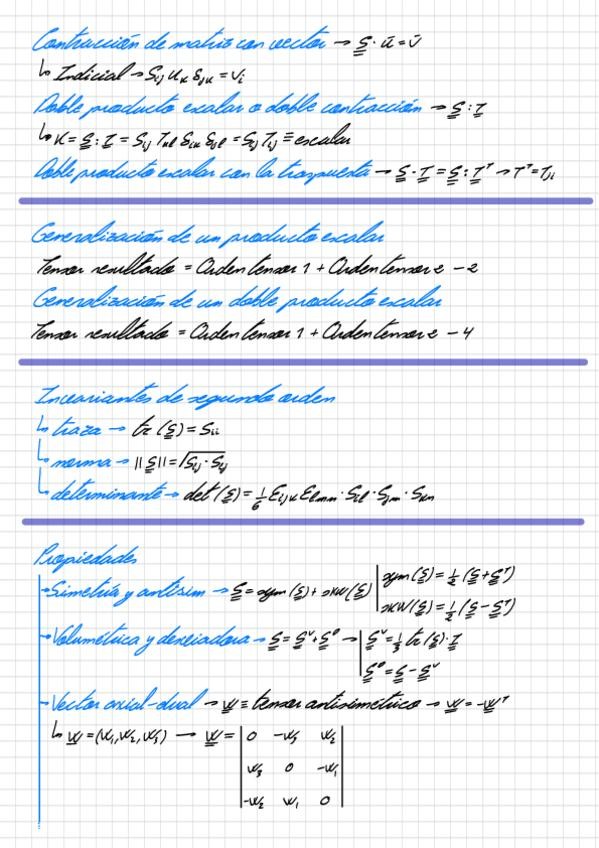 Contracción de matriz con vector → S̳ · ū = v̄
↳ Indicial → Sᵢⱼ uₖ δⱼₖ = vᵢ
Doble producto escalar o doble contracción → S̳ : T̳
↳ K = S̳ : T̳ = Sᵢⱼ Tₖₗ δᵢₖ δⱼₗ = Sᵢⱼ Tᵢⱼ ≡ escalar
Doble producto escalar con la traspuesta → S̳ · T̳ = S̳ : T̳ᵀ → Tᵀ = Tⱼᵢ
Generalización de un producto escalar
Tensor resultado = Orden tensor 1 + Orden tensor 2 − 2
Generalización de un doble producto escalar
Tensor resultado = Orden tensor 1 + Orden tensor 2 − 4
Invariantes de segundo orden
↳ traza → tr (S̳) = Sᵢᵢ
↳ norma → ||S̳|| = √(Sᵢⱼ · Sᵢⱼ)
↳ determinante → det (S̳) = 1/6 Eᵢⱼₖ Eₗₘₙ · Sᵢₗ · Sⱼₘ · Sₖₙ
Propiedades
→ Simetría y antisim → S̳ = sym (S̳) + skw (S̳) | sym (S̳) = 1/2 (S̳ + S̳ᵀ)
skw (S̳) = 1/2 (S̳ − S̳ᵀ)
→ Volumétrica y desviadora → S̳ = S̳ᵛ + S̳ᴰ → | S̳ᵛ = 1/3 tr (S̳) · I̳
S̳ᴰ = S̳ − S̳ᵛ
→ Vector axial-dual → W̳ ≡ tensor antisimétrico → W̳ = −W̳ᵀ
↳ w̲ = (w₁, w₂, w₃) → W̳ = | 0 −w₃ w₂ |
w₃ 0 −w₁
−w₂ w₁ 0